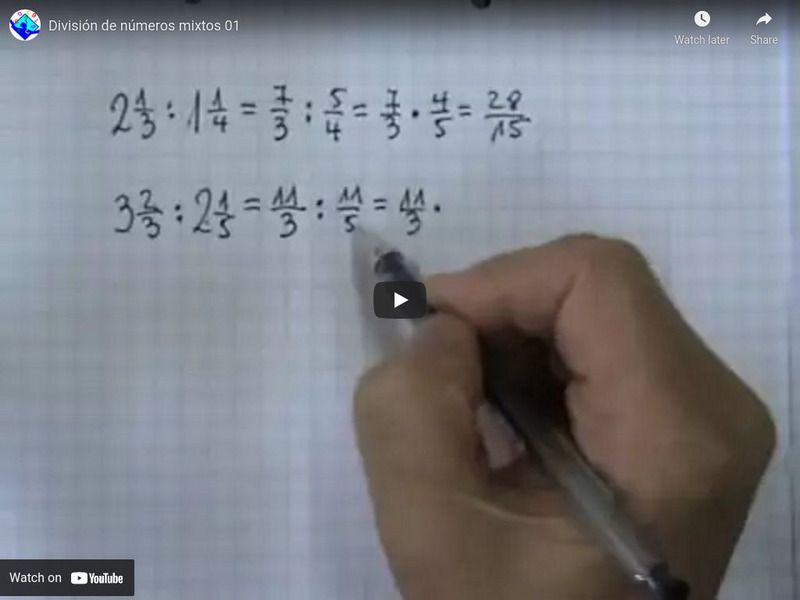 División de números mixtos 01
Watch later
Share
2 1/3 : 1 1/4 = 7/3 : 5/4 = 7/3 · 4/5 = 28/15
3 2/3 : 2 1/5 = 11/3 : 11/5 = 11/3 ·
Watch on YouTube